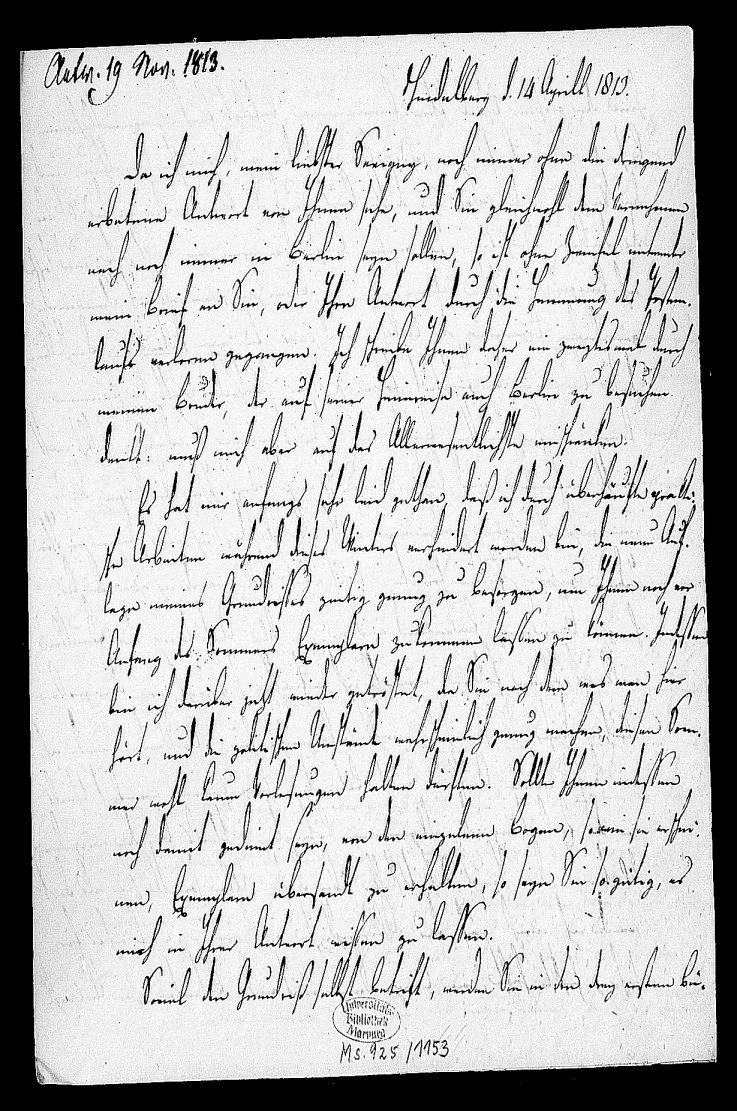 Antw. 19 Nov. 1813.
Heidelberg d. 14 Aprill 1813.
Da ich mich, mein liebster Savigny, noch immer ohne die dringend
erbetene Antwort von Ihnen sehe, und Sie gleichwohl dem Vernehmen
nach noch immer in Berlin seyn sollen, so ist ohne Zweifel entweder
mein Brief an Sie, oder Ihre Antwort durch die Hemmung des Posten-
laufs verloren gegangen. Ich schreibe Ihnen daher ein zweytesmal durch
meinen Bruder, der auf seiner Heimreise auch Berlin zu besuchen
denkt: muß mich aber auf das Allerwesentlichste einschränken.
Es hat mir anfangs sehr leid gethan, daß ich durch überhäufte prakti-
sche Arbeiten während dieses Winters verhindert worden bin, die neue Auf-
lage meines Grundrisses zeitig genug zu besorgen, um Ihnen noch vor
Anfang des Sommers Exemplare zukommen lassen zu können. Indessen
bin ich darüber jetzt wieder getröstet, da Sie nach dem was man hier
hört, und die politischen Umstände wahrscheinlich genug machen, diesen Som-
mer wohl kaum Vorlesungen halten dürften. Sollte Ihnen indessen
noch damit gedient seyn, von den einzelnen Bogen, sowie sie erschei-
nen, Exemplare übersandt zu erhalten, so seyn Sie so gütig, es
mich in Ihrer Antwort wissen zu lassen.
Soviel den Grundriß selbst betrift, werden Sie in den drey ersten Bü-
Universitäts-
Bibliothek
Marburg
Ms. 925/1153